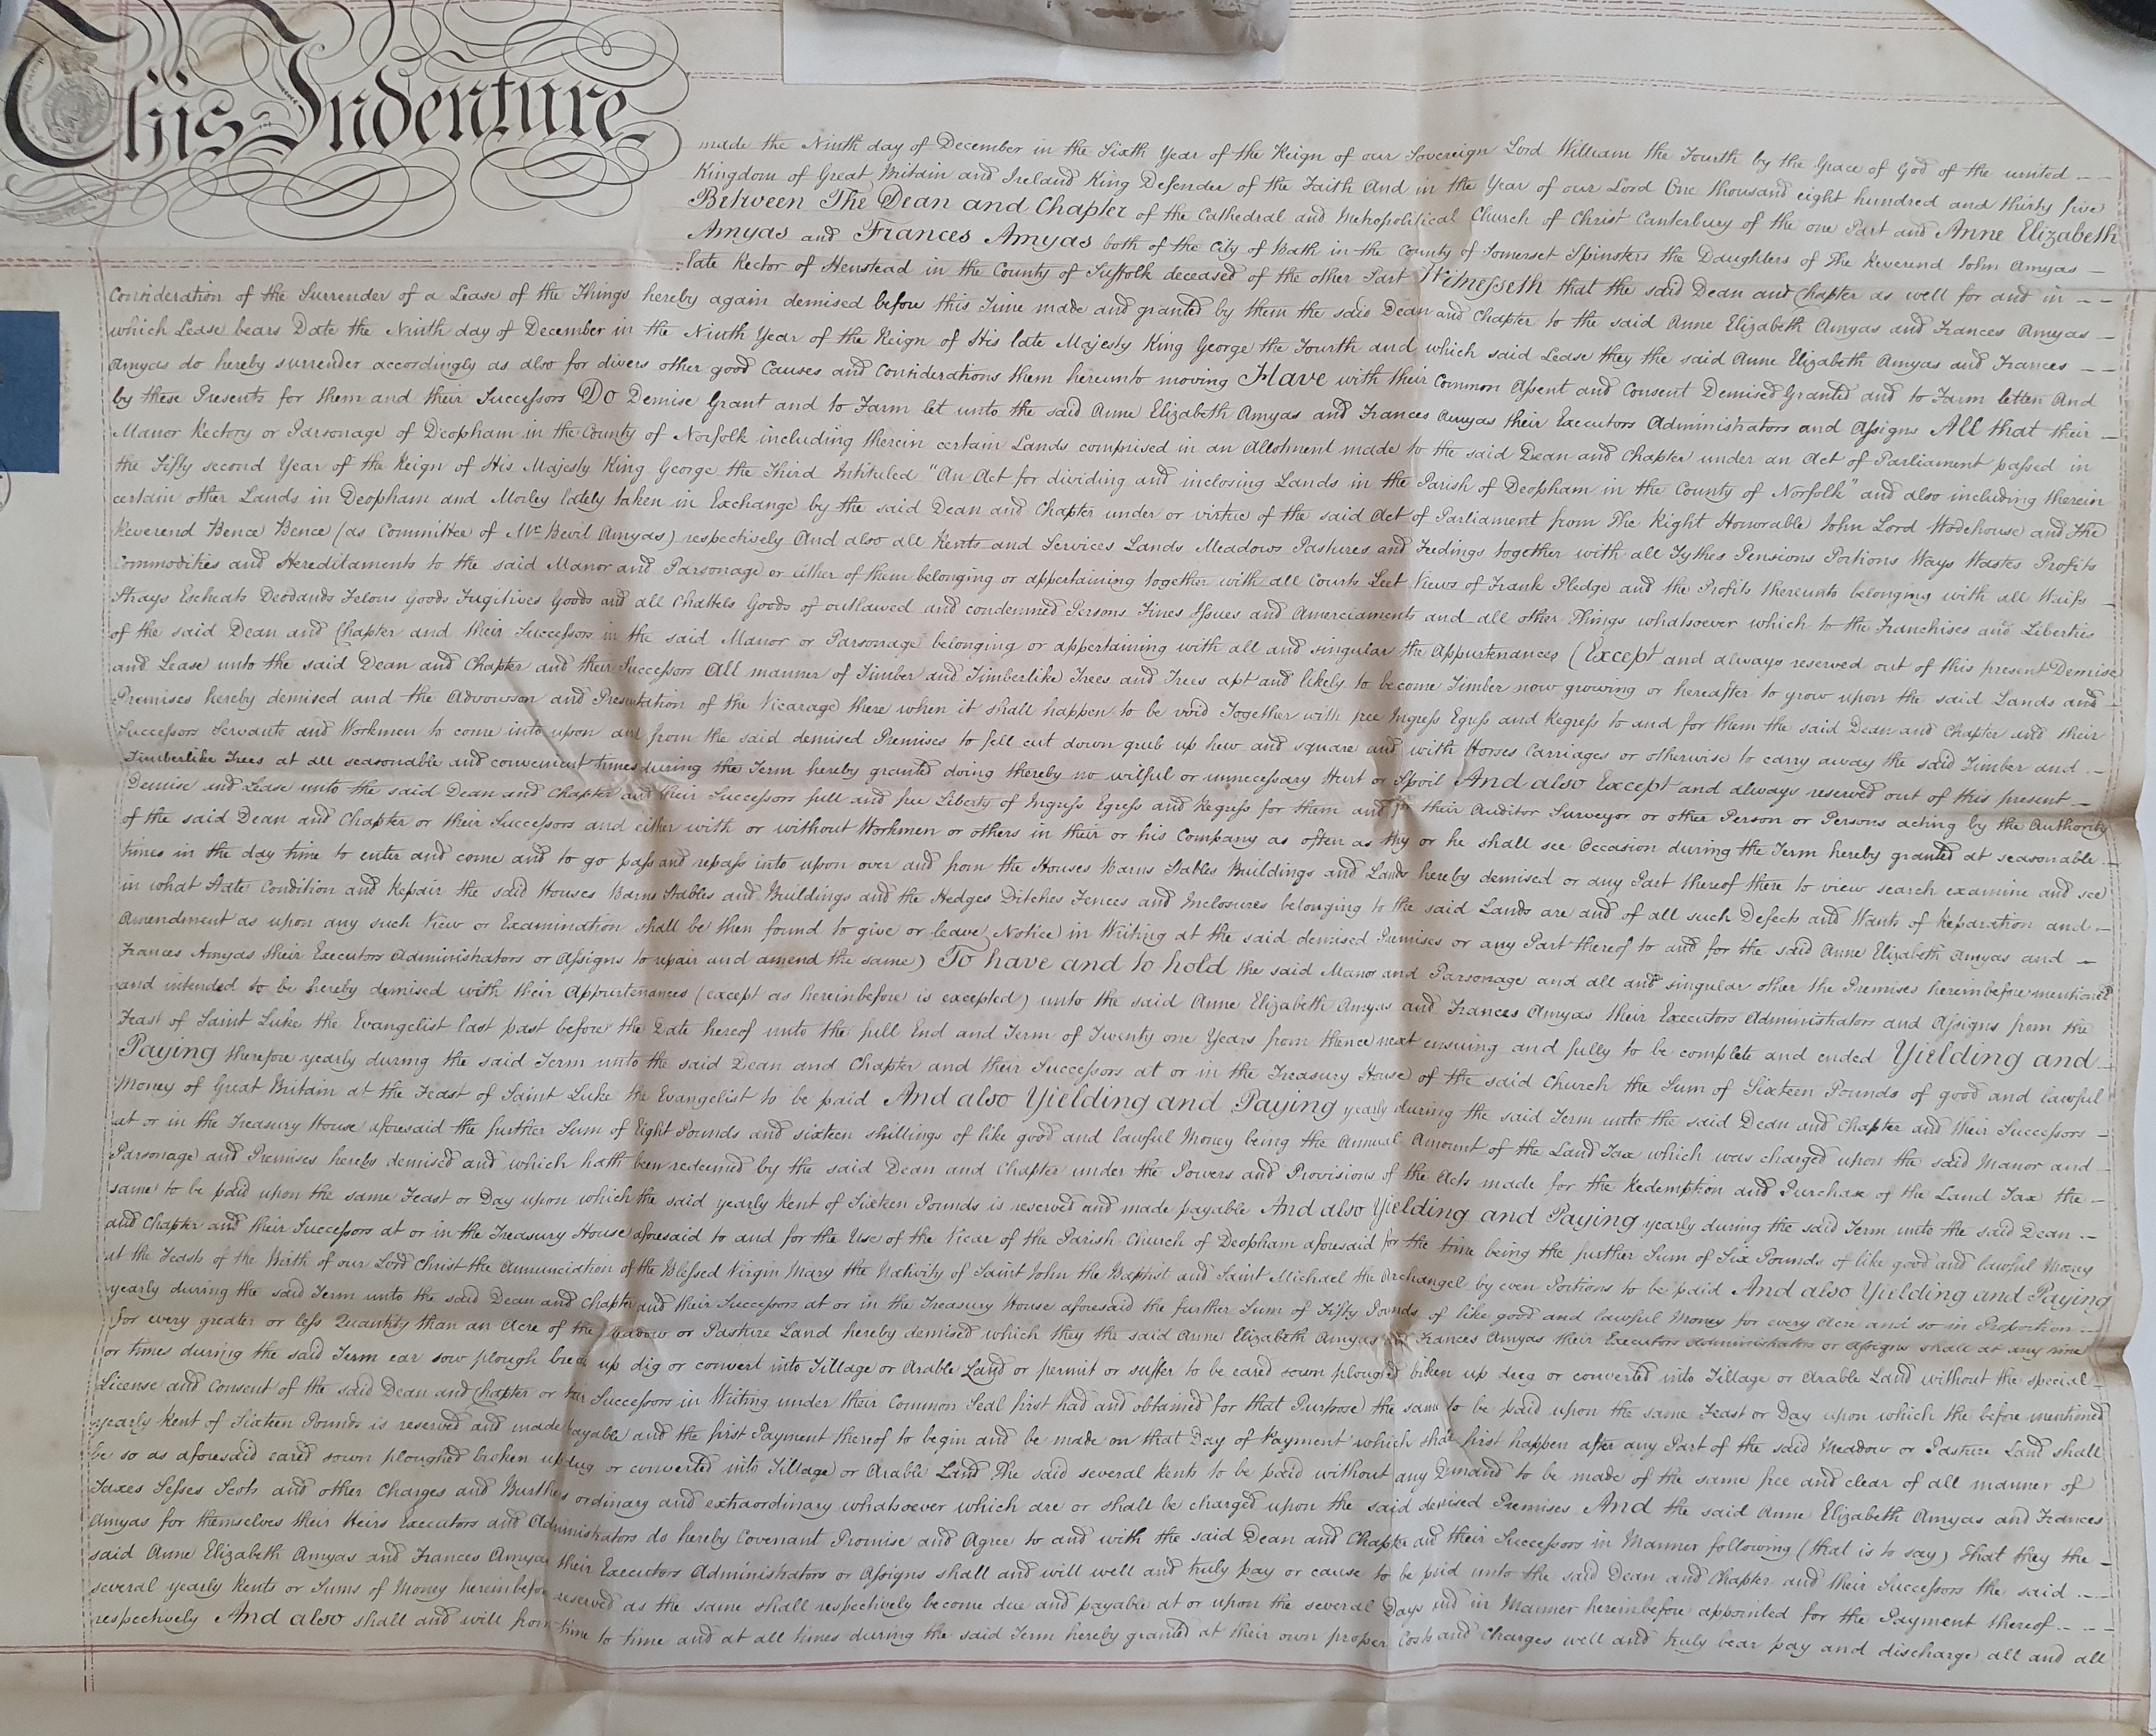 This Indenture
made the Ninth day of December in the Sixth Year of the Reign of our Sovereign Lord William the Fourth by the Grace of God of the united
Kingdom of Great Britain and Ireland King Defender of the Faith And in the Year of our Lord One thousand eight hundred and thirty five
Between The Dean and Chapter of the Cathedral and Metropolitical Church of Christ Canterbury of the one Part and Anne Elizabeth
Amyas and Frances Amyas both of the City of Bath in the County of Somerset Spinsters the Daughters of The Reverend John Amyas
late Rector of Henstead in the County of Suffolk deceased of the other Part Witnesseth that the said Dean and Chapter as well for and in
Consideration of the Surrender of a Lease of the Things hereby again demised before this Time made and granted by them the said Dean and Chapter to the said Anne Elizabeth Amyas and Frances Amyas
which Lease bears Date the Ninth day of December in the Ninth Year of the Reign of His late Majesty King George the Fourth and which said Lease they the said Anne Elizabeth Amyas and Frances
Amyas do hereby surrender accordingly as also for divers other good Causes and Considerations them hereunto moving Have with their Common Assent and Consent Demised Granted and to Farm letten And
by these Presents for them and their Successors Do Demise Grant and to Farm let unto the said Anne Elizabeth Amyas and Frances Amyas their Executors Administrators and Assigns All that their
Manor Rectory or Parsonage of Deopham in the County of Norfolk including therein certain Lands comprised in an Allotment made to the said Dean and Chapter under an Act of Parliament passed in
the Fifty second Year of the Reign of His Majesty King George the Third Intituled "An Act for dividing and inclosing Lands in the Parish of Deopham in the County of Norfolk" and also including therein
certain other Lands in Deopham and Morley lately taken in Exchange by the said Dean and Chapter under or virtue of the said Act of Parliament from The Right Honorable John Lord Wodehouse and The
Reverend Bence Bence (as Committee of Mr. Bevil Amyas) respectively And also all Rents and Services Lands Meadows Pastures and Feedings together with all Tythes Pensions Portions Ways Wastes Profits
Commodities and Hereditaments to the said Manor and Parsonage or either of them belonging or appertaining together with all Courts Leet Views of Frank Pledge and the Profits thereunto belonging with all Waifs
Strays Escheats Deodands Felons Goods Fugitives Goods and all Chattels Goods of outlawed and condemned Persons Fines Issues and Amerciaments and all other Things whatsoever which to the Franchises and Liberties
of the said Dean and Chapter and their Successors in the said Manor or Parsonage belonging or appertaining with all and singular the Appurtenances (Except and always reserved out of this present Demise
and Lease unto the said Dean and Chapter and their Successors All manner of Timber and Timberlike Trees and Trees apt and likely to become Timber now growing or hereafter to grow upon the said Lands and
Premises hereby demised and the Advowson and Presentation of the Vicarage there when it shall happen to be void Together with free Ingress Egress and Regress to and for them the said Dean and Chapter and their
Successors Servants and Workmen to come into upon and from the said demised Premises to fell cut down grub up hew and square and with Horses Carriages or otherwise to carry away the said Timber and
Timberlike Trees at all seasonable and convenient times during the Term hereby granted doing thereby no wilful or unnecessary Hurt or Spoil And also Except and always reserved out of this present
Demise and Lease unto the said Dean and Chapter and their Successors full and free Liberty of Ingress Egress and Regress for them and for their Auditor Surveyor or other Person or Persons acting by the Authority
of the said Dean and Chapter or their Successors and either with or without Workmen or others in their or his Company as often as they or he shall see Occasion during the Term hereby granted at seasonable
times in the day time to enter and come and to go pass and repass into upon over and from the Houses Barns Stables Buildings and Lands hereby demised or any Part thereof there to view search examine and see
in what State Condition and Repair the said Houses Barns Stables and Buildings and the Hedges Ditches Fences and Inclosures belonging to the said Lands are and of all such Defects and Wants of Reparation and
Amendment as upon any such View or Examination shall be then found to give or leave Notice in Writing at the said demised Premises or any Part thereof to and for the said Anne Elizabeth Amyas and
Frances Amyas their Executors Administrators or Assigns to repair and amend the same) To have and to hold the said Manor and Parsonage and all and singular other the Premises hereinbefore mentioned
and intended to be hereby demised with their Appurtenances (except as hereinbefore is excepted) unto the said Anne Elizabeth Amyas and Frances Amyas their Executors Administrators and Assigns from the
Feast of Saint Luke the Evangelist last past before the Date hereof unto the full End and Term of Twenty one Years from thence next ensuing and fully to be complete and ended Yielding and
Paying therefore yearly during the said Term unto the said Dean and Chapter and their Successors at or in the Treasury House of the said Church the Sum of Sixteen Pounds of good and lawful
Money of Great Britain at the Feast of Saint Luke the Evangelist to be paid And also Yielding and Paying yearly during the said Term unto the said Dean and Chapter and their Successors
at or in the Treasury House aforesaid the further Sum of Eight Pounds and sixteen shillings of like good and lawful Money being the Annual Amount of the Land Tax which was charged upon the said Manor and
Parsonage and Premises hereby demised and which hath been redeemed by the said Dean and Chapter under the Powers and Provisions of the Acts made for the Redemption and Purchase of the Land Tax the
same to be paid upon the same Feast or Day upon which the said yearly Rent of Sixteen Pounds is reserved and made payable And also Yielding and Paying yearly during the said Term unto the said Dean
and Chapter and their Successors at or in the Treasury House aforesaid to and for the Use of the Vicar of the Parish Church of Deopham aforesaid for the time being the further Sum of Six Pounds of like good and lawful Money
at the Feasts of the Birth of our Lord Christ the Annunciation of the Blessed Virgin Mary the Nativity of Saint John the Baptist and Saint Michael the Archangel by even Portions to be paid And also Yielding and Paying
yearly during the said Term unto the said Dean and Chapter and their Successors at or in the Treasury House aforesaid the further Sum of Fifty Pounds of like good and lawful Money for every Acre and so in Proportion
for every greater or less Quantity than an Acre of the Meadow or Pasture Land hereby demised which they the said Anne Elizabeth Amyas and Frances Amyas their Executors Administrators or Assigns shall at any time
or times during the said Term ear sow plough break up dig or convert into Tillage or Arable Land or permit or suffer to be eared sown ploughed broken up dug or converted into Tillage or Arable Land without the special
License and Consent of the said Dean and Chapter or their Successors in Writing under their Common Seal first had and obtained for that Purpose the same to be paid upon the same Feast or Day upon which the before mentioned
yearly Rent of Sixteen Pounds is reserved and made payable and the first Payment thereof to begin and be made on that Day of Payment which shall first happen after any Part of the said Meadow or Pasture Land shall
be so as aforesaid eared sown ploughed broken up dug or converted into Tillage or Arable Land The said several Rents to be paid without any Demand to be made of the same free and clear of all manner of
Taxes Sesses Scots and other Charges and Burthens ordinary and extraordinary whatsoever which are or shall be charged upon the said demised Premises And the said Anne Elizabeth Amyas and Frances
Amyas for themselves their Heirs Executors and Administrators do hereby Covenant Promise and Agree to and with the said Dean and Chapter and their Successors in Manner following (that is to say) That they the
said Anne Elizabeth Amyas and Frances Amyas their Executors Administrators or Assigns shall and will well and truly pay or cause to be paid unto the said Dean and Chapter and their Successors the said
several yearly Rents or Sums of Money hereinbefore reserved as the same shall respectively become due and payable at or upon the several Days and in Manner hereinbefore appointed for the Payment thereof
respectively And also shall and will from time to time and at all times during the said Term hereby granted at their own proper Costs and Charges well and truly bear pay and discharge all and all